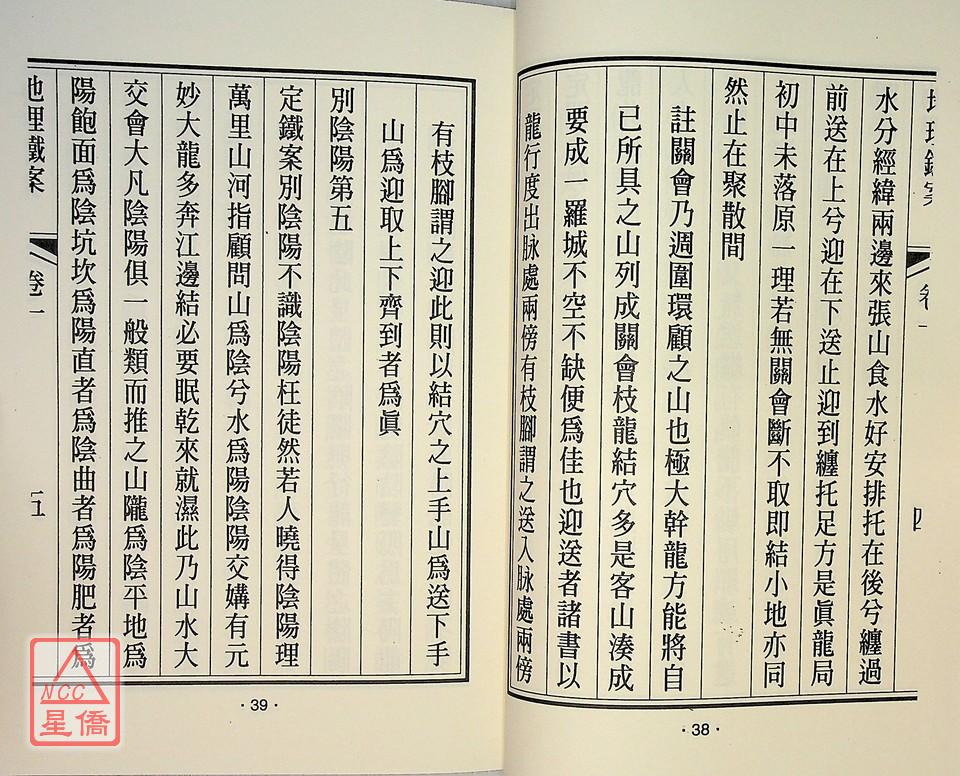 地理鐵案
卷一
四
水分經緯兩邊來張山食水好安排托在後兮纏過
前送在上兮迎在下送止迎到纏托足方是眞龍局
初中未落原一理若無關會斷不取即結小地亦同
然止在聚散間
註關會乃週圍環顧之山也極大幹龍方能將自
已所具之山列成關會枝龍結穴多是客山湊成
要成一羅城不空不缺便爲佳也迎送者諸書以
龍行度出脉處兩傍有枝腳謂之送入脉處兩傍
·38·
有枝腳謂之迎此則以結穴之上手山爲送下手
山爲迎取上下齊到者爲眞
別陰陽第五
定鐵案別陰陽不識陰陽枉徒然若人曉得陰陽理
萬里山河指顧問山爲陰兮水爲陽陰陽交媾有元
妙大龍多奔江邊結必要眠乾來就濕此乃山水大
交會大凡陰陽俱一般類而推之山隴爲陰平地爲
陽飽面爲陰坑坎爲陽直者爲陰曲者爲陽肥者爲
地理鐵案
卷一
五
·39·
NCC
星僑